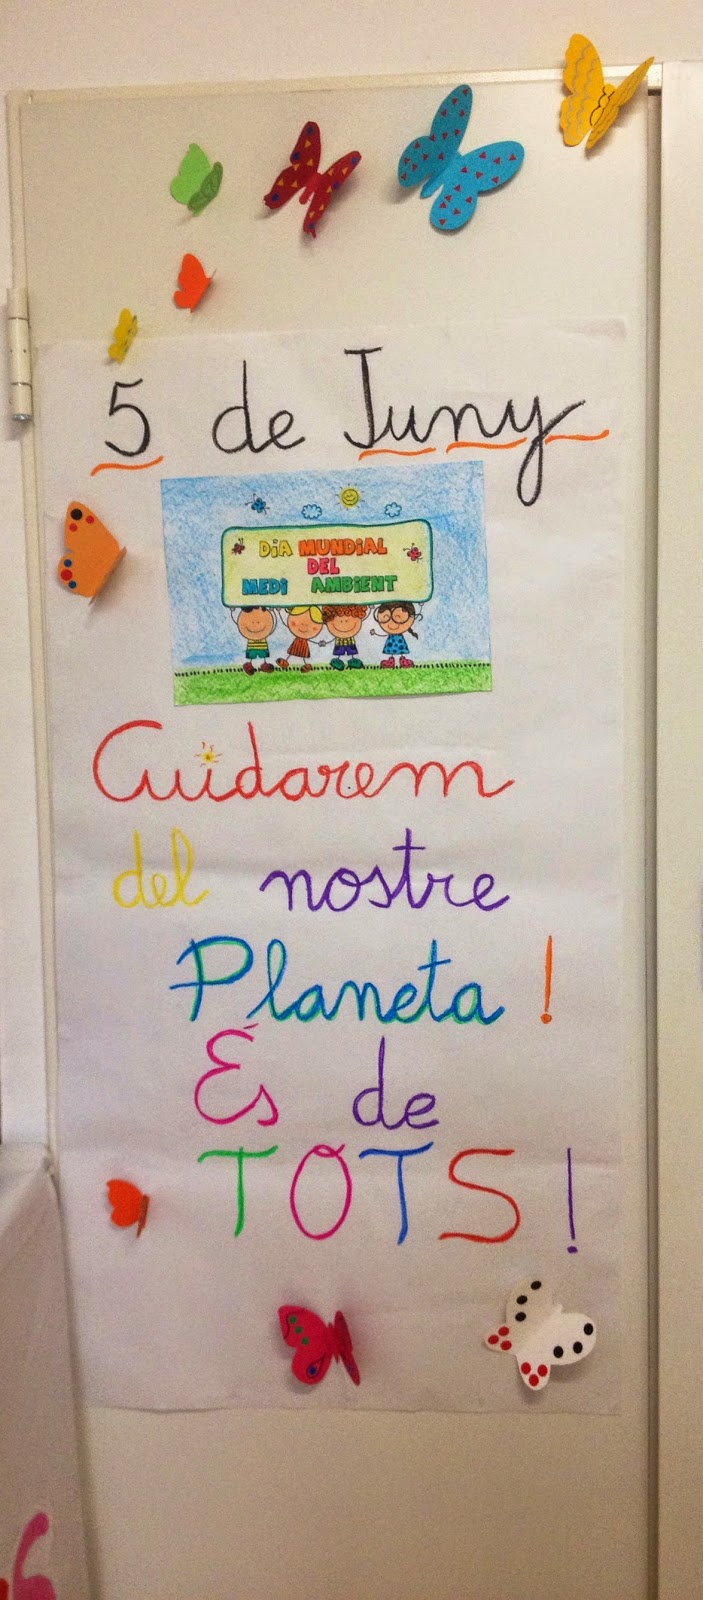 5 de Juny
DIA MUNDIAL
DEL
MEDI AMBIENT
Cuidarem
del nostre
Planeta!
És de
TOTS!